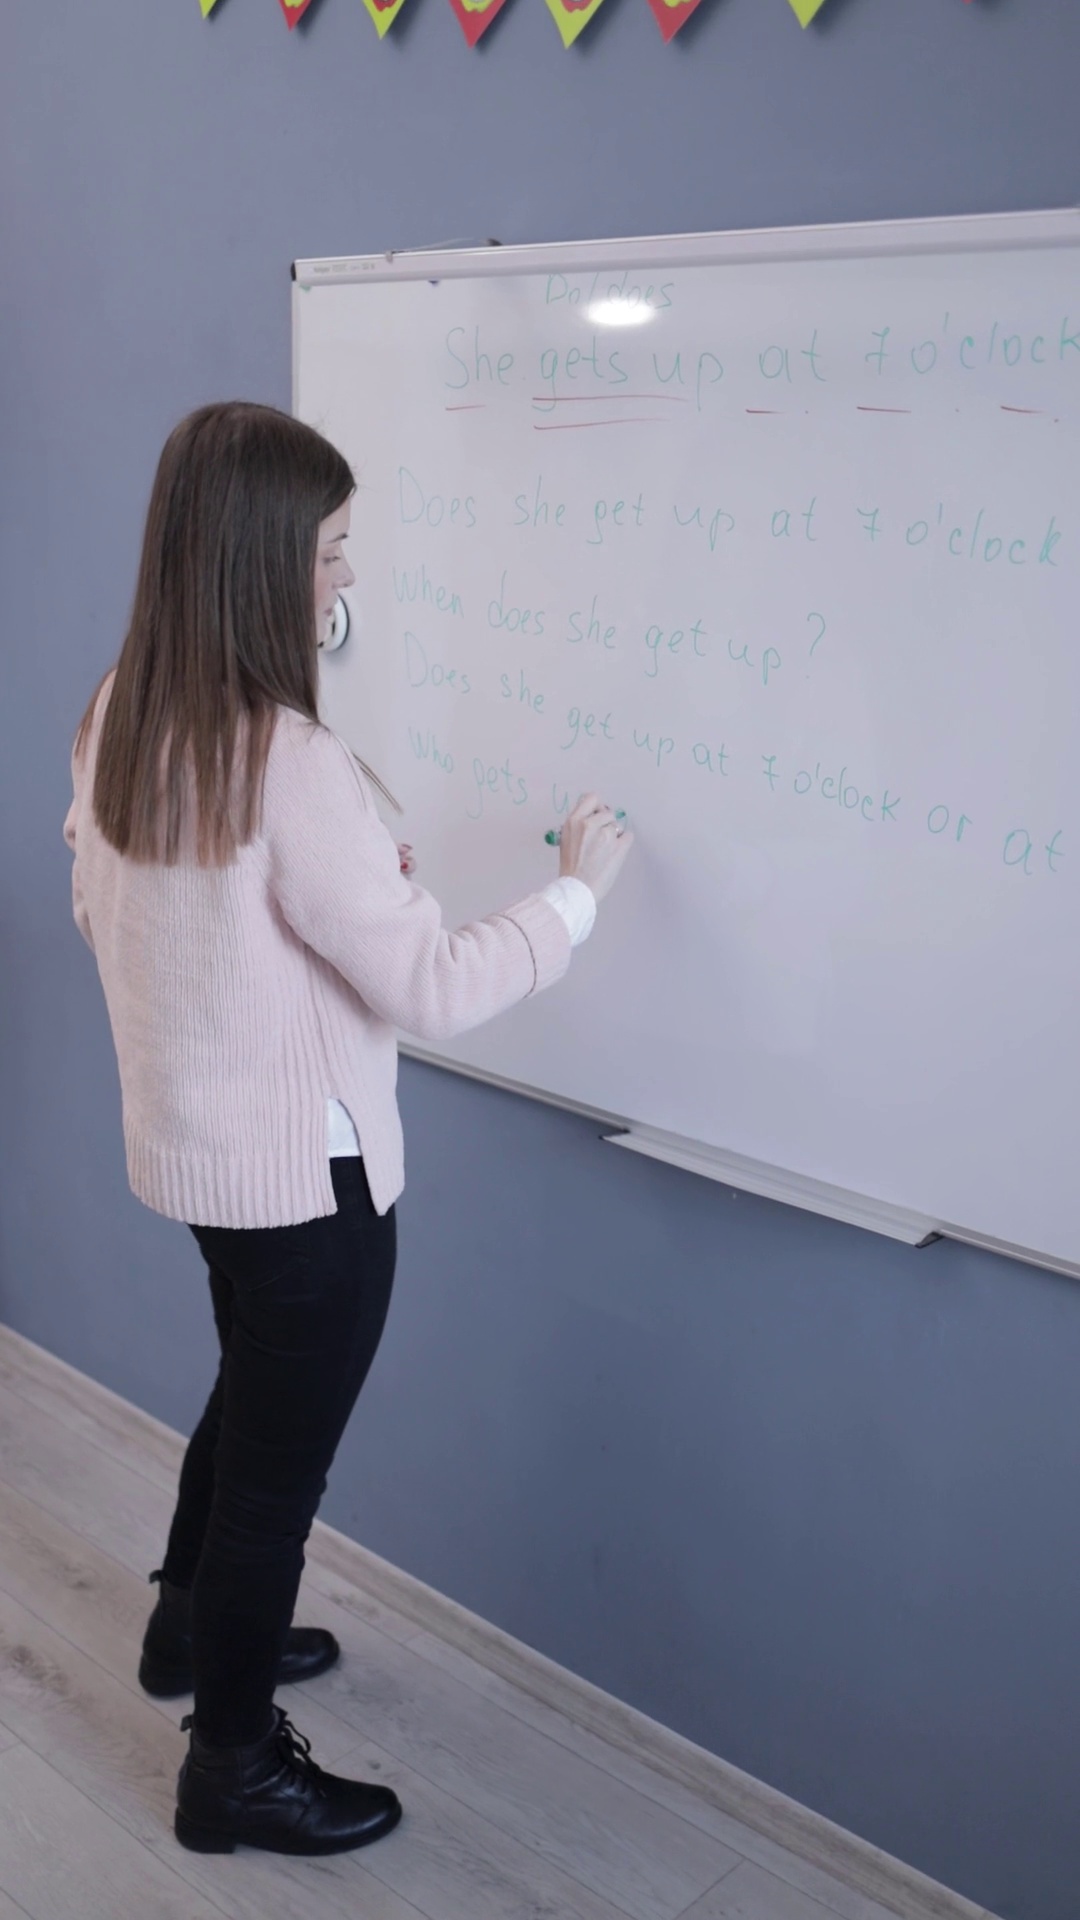 Do/does
She gets up at 7 o'clock
Does she get up at 7 o'clock
When does she get up?
Does she get up at 7 o'clock or at
Who gets